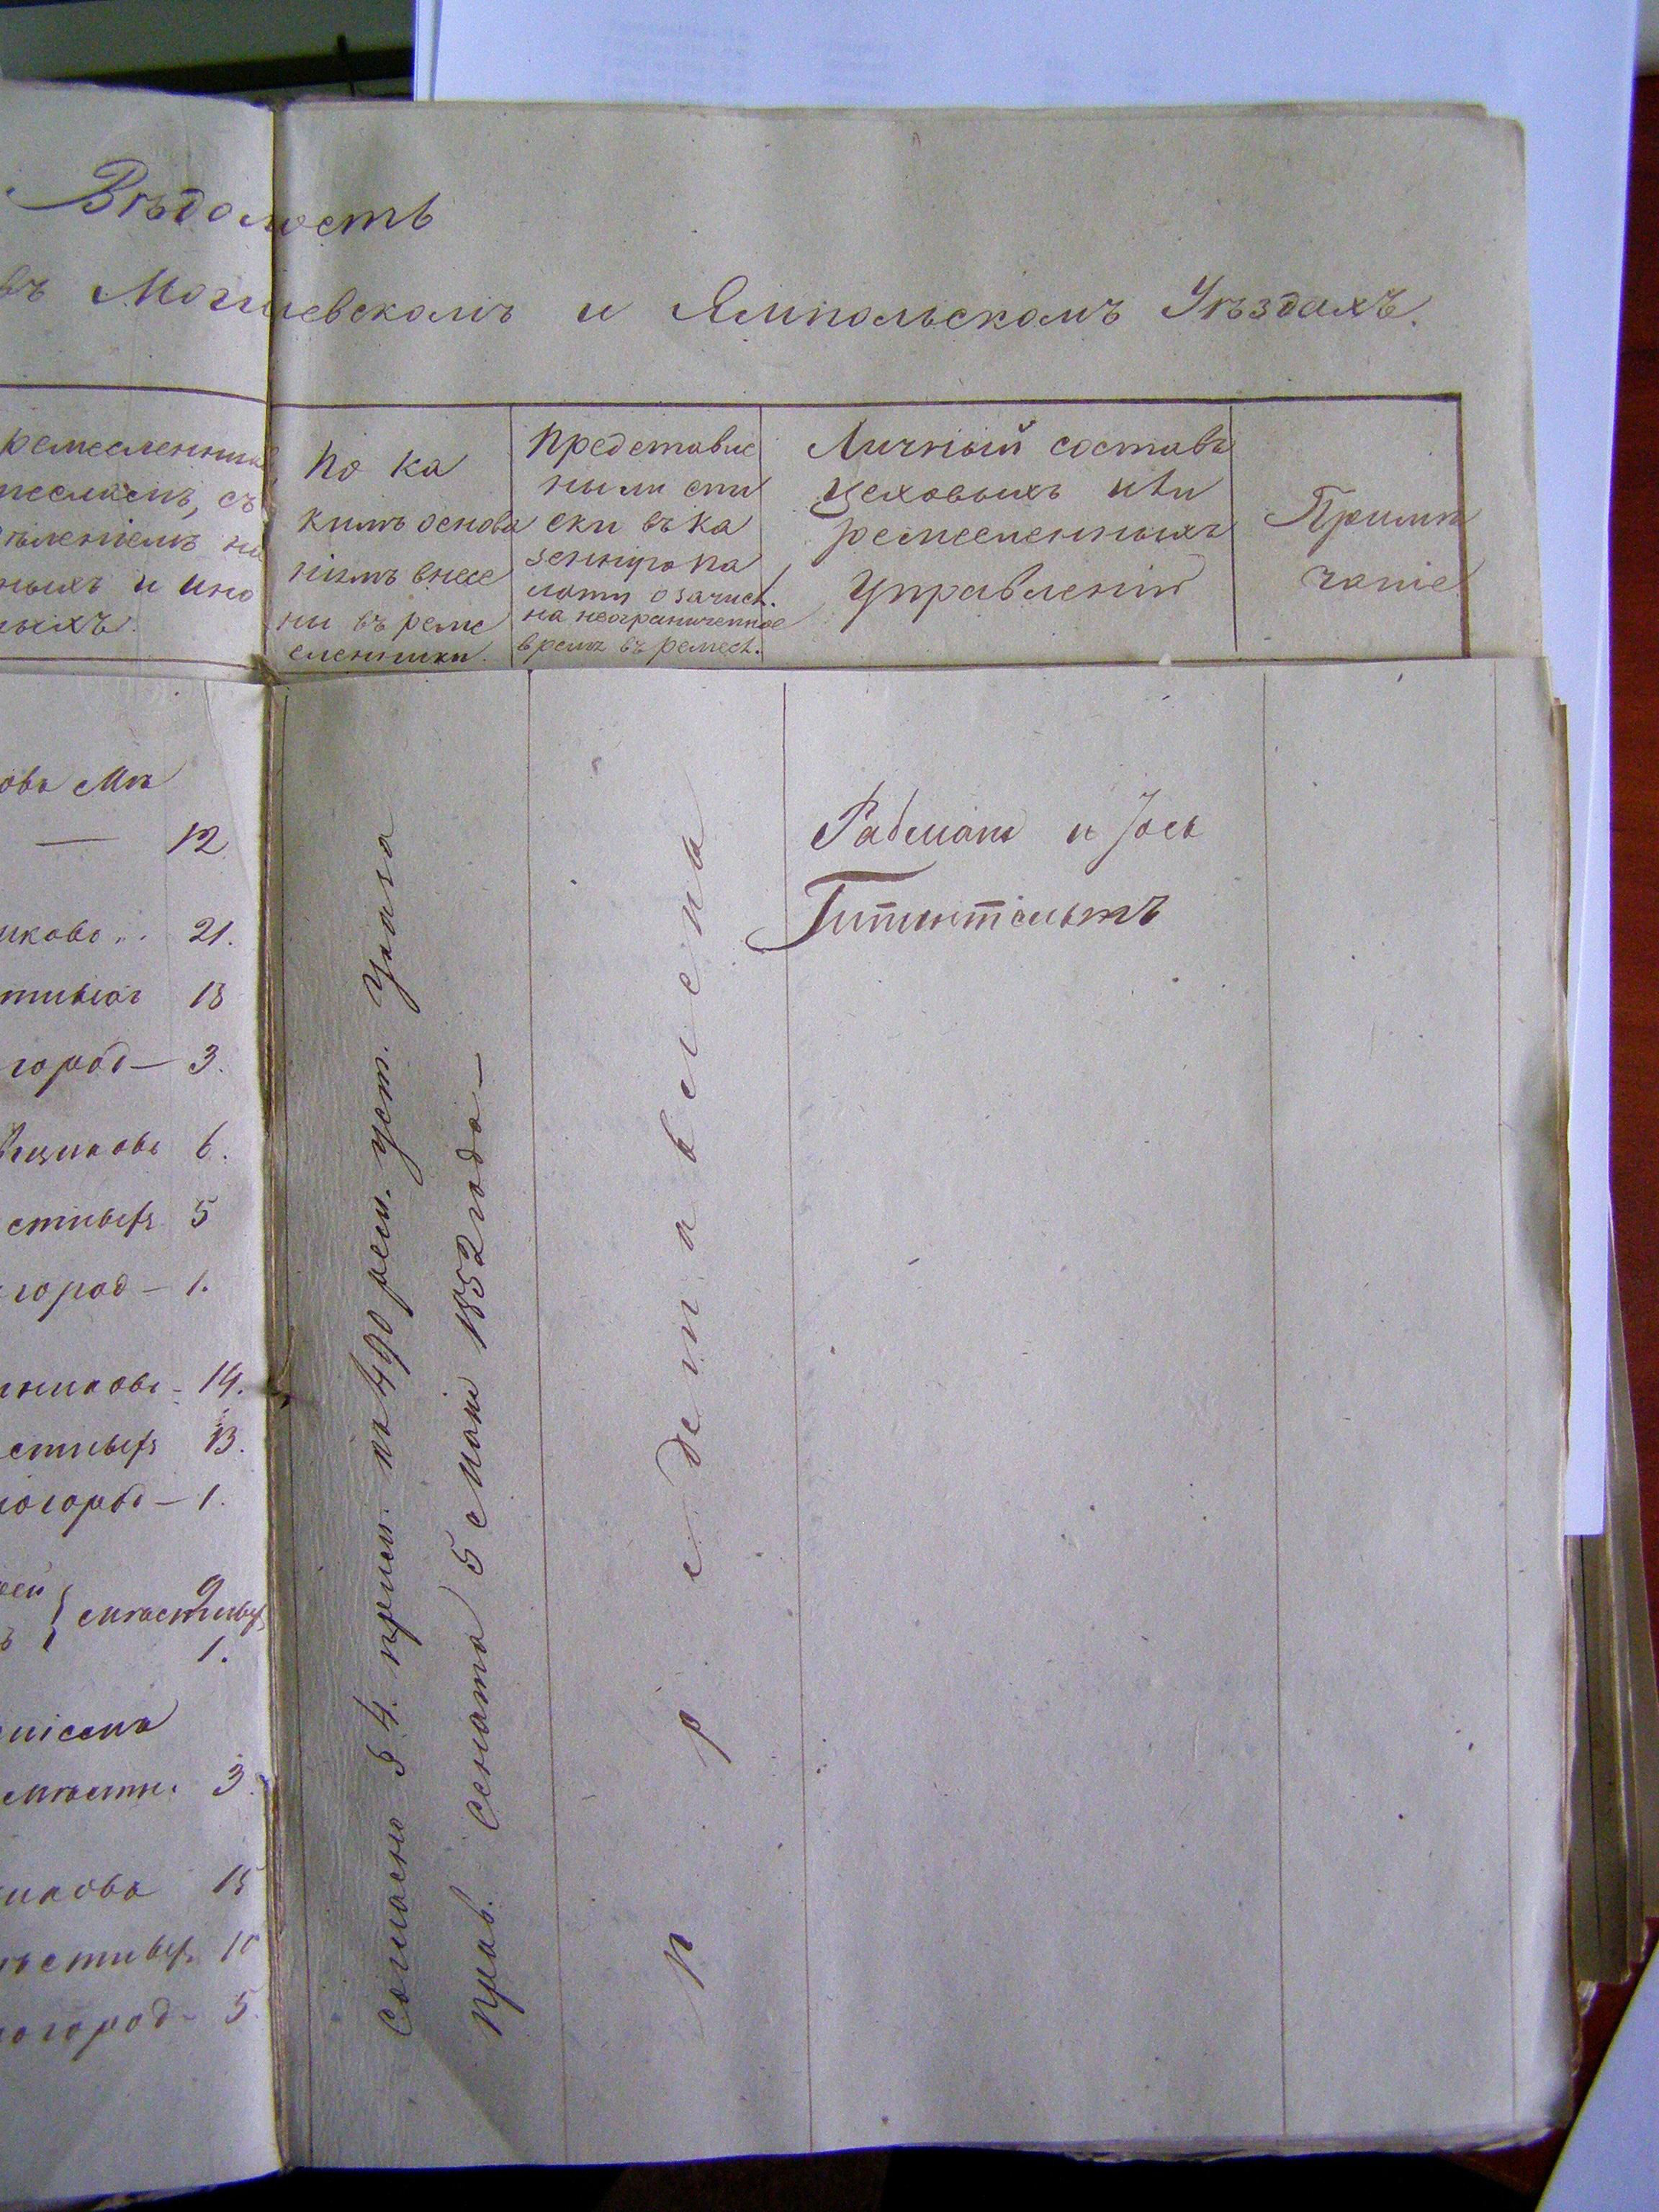 Вѣдомость
въ Могилевскомъ и Ямпольскомъ Уѣздахъ.
ремесленник
месламъ, съ
ѣленіемъ на
ныхъ и ино
ныхъ.
По ка
кимъ основа
ніямъ внесе
ны въ реме
сленники.
Представле
ны ли спи
ски въ ка
зенную па
лату о зачисл.
на неограниченное
время въ ремесл.
Личный составъ
цеховыхъ или
ремесленныхъ
Управленій
Примѣ
чаніе
овъ Мѣ
— 12
иково .. 21.
13
город — 3.
щиковъ 6.
стныхъ 5
город — 1.
никовъ - 14.
стныхъ 13.
ногород — 1.
мѣстных
9
1.
мѣстн. 3.
иковъ 15
ѣстных 10
ногород - 5.
Согласно § 4. прим. къ 490 рем. уст. Указа
Прав. Сената 5 Мая 1852 года —
представлены
и Іось